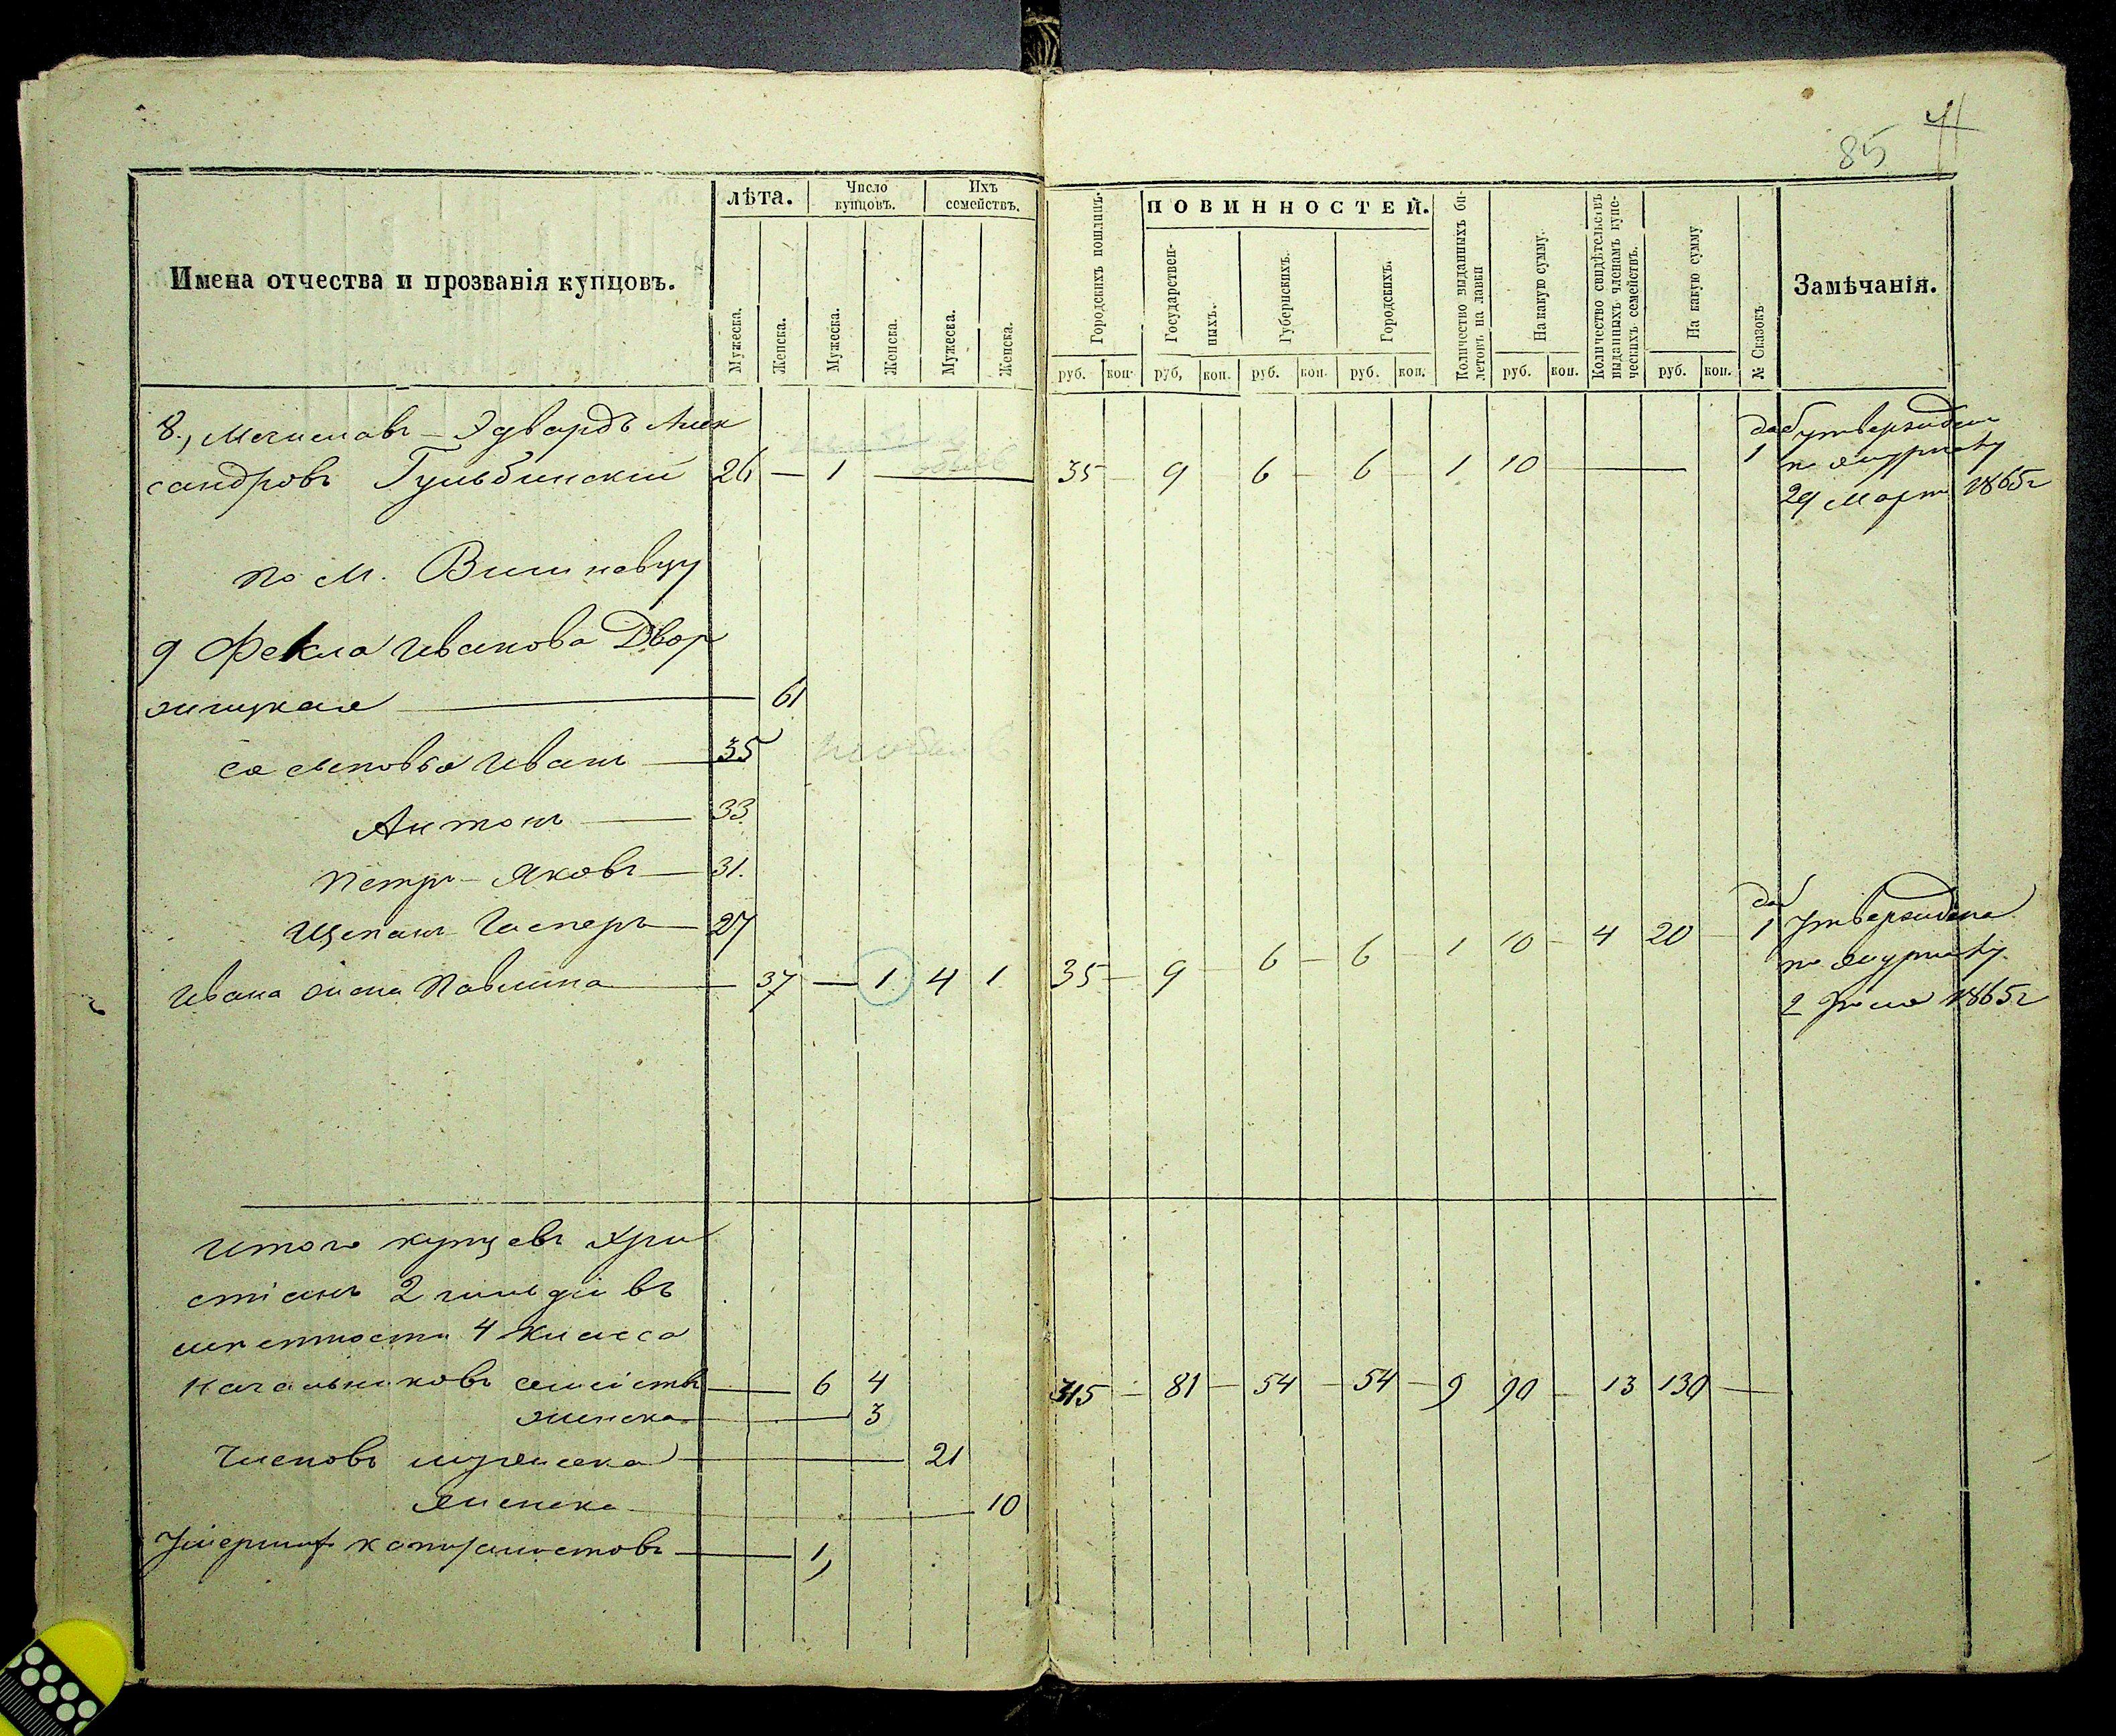 85
Имена отчества и прозванія купцовъ.
лѣта.
Число купцовъ.
Ихъ семействъ.
Мужеска.
Женска.
Мужеска.
Женска.
Мужеска.
Женска.
Городскихъ пошлинъ.
ПОВИННОСТЕЙ.
Государствен-
ныхъ.
Губернскихъ.
Городскихъ.
Количество выданныхъ би-
летовъ на лавки
На какую сумму.
Количество свидѣтельствъ
выданныхъ членамъ купе-
ческихъ семействъ.
На какую сумму
№ Сказокъ
Замѣчанія.
руб. коп. руб, коп. руб. коп. руб. коп. руб. коп. руб. коп.
8., Мечиславъ - Эдвардъ Алек
сандровъ Гульбинскій 26 — 1 — 35 — 9 6 — 6 — 1 10 — 1
утвержденъ
по журналу
29 Марта 1865г
по М. Вишневцу
9 Фекла Иванова Двор
жицкая — 61
ея сыновья Иванъ — 35
Антонъ — 33
Петръ - Яковъ — 31.
Щепанъ Гасперъ — 27
Ивана жена Павлина — 37 — 1 4 1 35 — 9 — 6 — 6 — 1 10 — 4 20 — 1
Утверждена
по журналу
2 Юня 1865г
Итого купцевъ Хри
стіанъ 2 гильдіи въ
мѣстности 4 класса
Начальниковъ семействъ — 6 4 315 — 81 — 54 — 54 — 9 90 — 13 130 —
женска — 3
Членовъ мужеска — 21
женска — 10
Умерших капиталистовъ — 1,